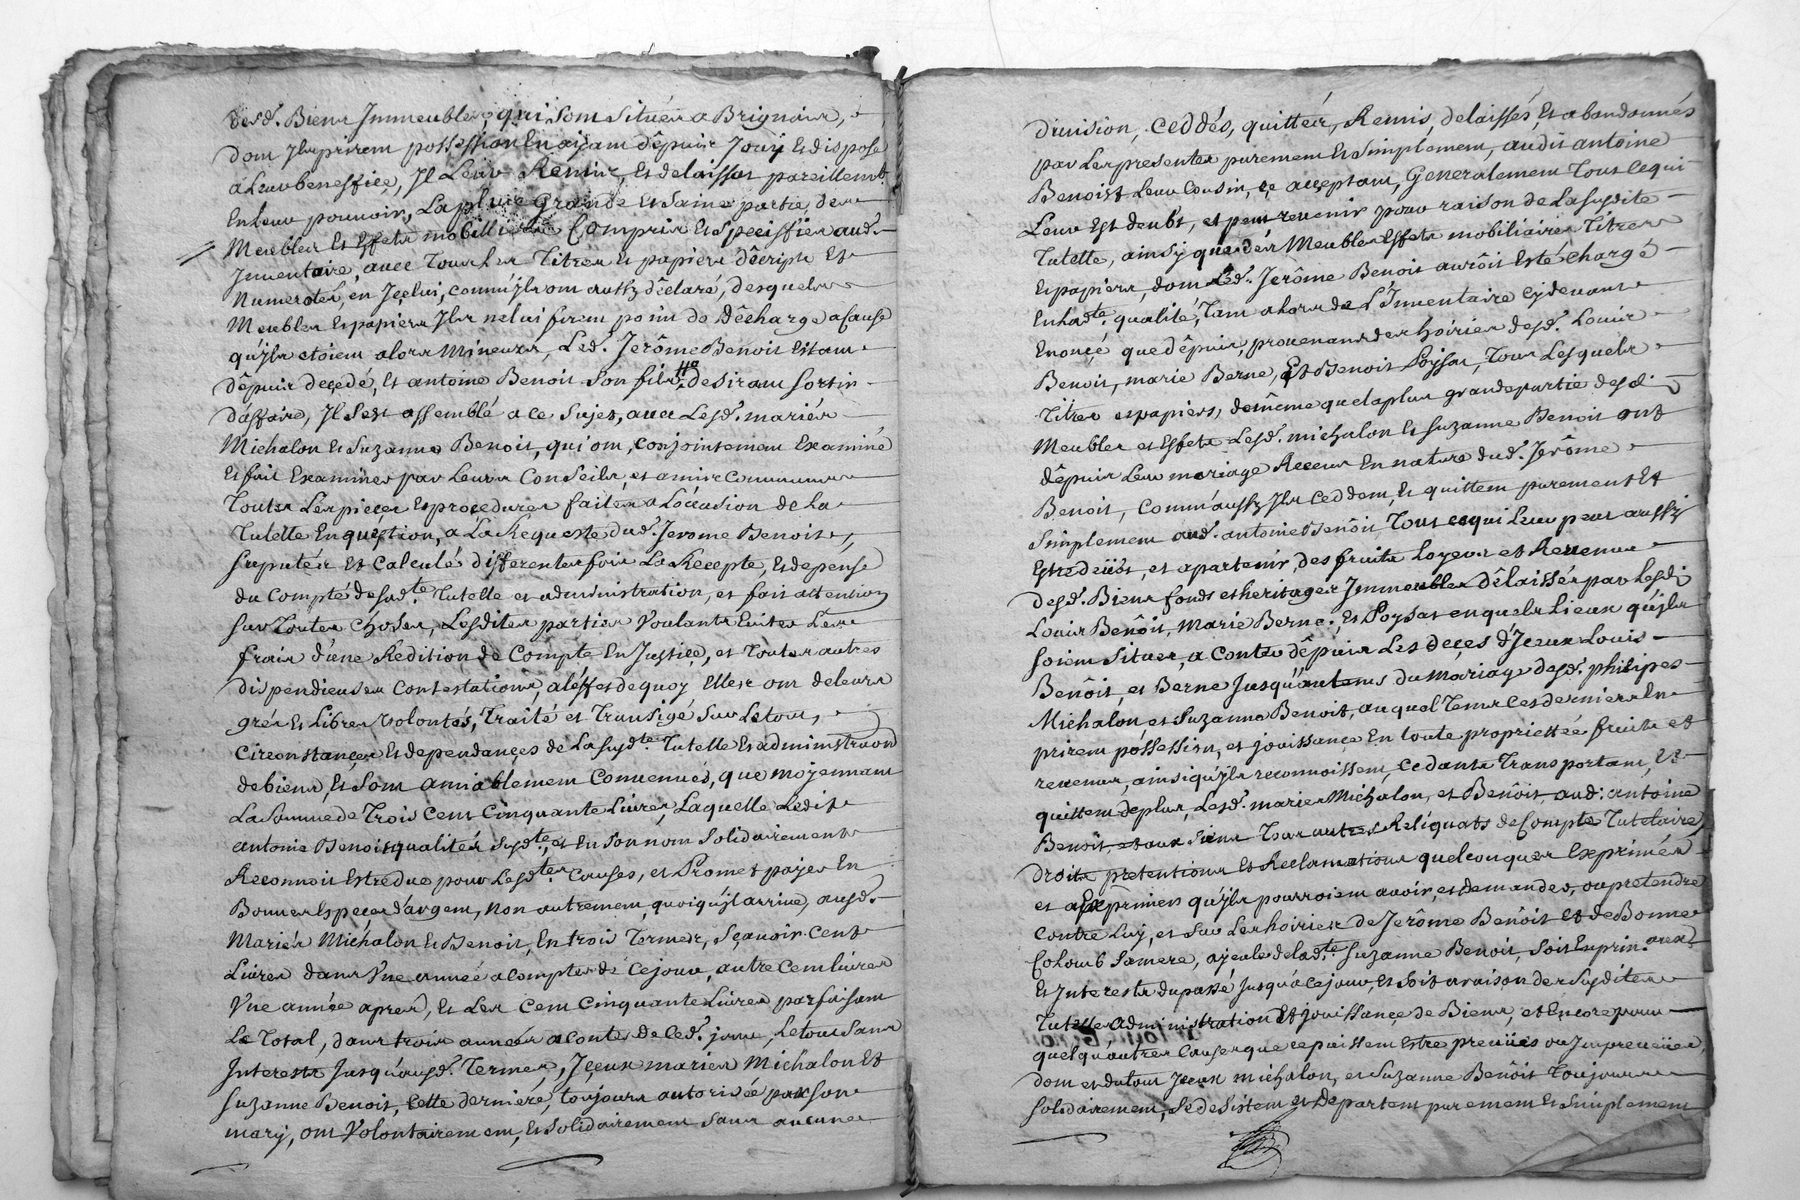 desd. Biens Immeubles, qui sont situés a Brignais,
dont Ils prirent possession En ayant depuis Jouÿ Et disposé
a Leur beneffice, Il Leur Remit, Et delaissat pareillemt
En leur pouvoir, La plus Grande Et Saine partie, des
Meubles Et Effets mobilliaires Compris Et Speciffiés aud.
Inventaire, avec Tous Les Titres Et papiers décripts Et
Numerotés, en Içelui, comm'ils ont aussy déclaré, desquels
Meubles Et papiers Ils ne lui firent point de décharge a Cause
qu'ils etoient alors Mineurs, Led. Jerôme Benoit Etant
depuis deçedé, Et antoine Benoit Son fils Her desirant Sortir
d'affaire, Il s'est assemblé a ce Sujet, avec Lesd. mariés
Michalon Et Suzanne Benoit, qui ont, conjointement Examiné
Et fait Examiner par Leurs Conseils, et amis Communs
Toutes Les pieçes Et procedures faites a L'ôccasion de la
Tutelle En question, a La Requeste dud. Jerome Benoit,
supputés Et Calculé differentes fois La Recepte, Et depense
du Compte de Sadte Tutelle et administration, et fait attention
sur Toutes Choses, Lesdites parties Voulants Eviter Les
frais d'une Redition de Compte En Justiçe, et Toutes autres
dispendieuses Contestations, a l'éffet de quoy Elles ont de leurs
grés Et Libres Volontés, Traité et Transigé Sur Le tout,
Circonstançes Et dependançes de La Susdte Tutelle Et administraon
de biens, Et Sont amiablement Convenües, que moyennant
La Somme de Trois Cent Cinquante Livres, Laquelle Ledit
antoine Benoit qualités Susdtes, et En Son nom Solidairement
Reconnoit Estre due pour Lesdtes Causes, et Promet payer En
Bonnes Espeçes d'argent, Non autrement, quoiqu'il arrive, ausd.
Mariés Michalon Et Benoit, En trois Termes, Sçavoir Cent
Livres dans Une année a Compter de Ce jour, autre Cent livres
Une année aprés, Et Les Cent Cinquante Livres parfaisant
Le Total, dans trois années a Conter de Ced. jour, Le tout Sans
Interests Jusqu'ausd. Termes, Içeux mariés Michalon Et
Suzanne Benoit, Cette derniere, toujours autorisée par son
mary, ont Volontairement, Et Solidairement Sans aucune
division, Ceddés, quittés, Remis, delaissés, Et abandonnés
par Les presentes purement Et Simplement, audit antoine
Benoist Leur Cousin, Ce acceptant, Generalement Tout Ce qui
Leur Est deubt, et peut revenir pour raison de La Susdite
Tutelle, ainsÿ que des Meubles Effets mobiliaires Titres
Et papiers, dont Led. Jerôme Benoit auroit Esté Chargé
En ladte qualité, Tant alors de L'Inventaire cy devant
Enonçé que depuis, provenants des hoiries desd. Louis
Benoit, marie Berne, Et Benoit Poysat, Tous Lesquels
Titres et papiers, de même que la plus grande partie desd.
Meubles et Effets Lesd. michalon Et Suzanne Benoit ont
dêpuis Leur mariage Reçeus En nature dud. Jerôme
Benoit, Comm'aussy Ils Ceddent, Et quittent purement Et
Simplement aud. antoine Benoit, Tout ce qui Leur peut aussÿ
Estre deüst, et apartenir, des fruits Loyers et Revenus
desd. Biens fonds et heritages Immeubles dêlaissés par Lesd.
Louis Benôit, Marie Berne, Et Poysat en quels Lieux qu'ils
soient Situés, a Conter dépuis Les deçes d'Içeux Louis
Benôit, et Berne Jusqu'au tems du Mariage desd. philipes
Michalon, et Suzanne Benoit, auquel Tems Ces derniers En
prirent possession, et jouissançe En toute proprietté fruits et
revenus, ainsi qu'ils reconnoissent, Cedants Transportant, Et
quittent de plus, Lesd. mariés Michalon, et Benôit, aud. antoine
Benôit, et aux siens Tous autres Reliquats de Compte Tutelaire
droits pretentions Et Reclamations quelconques Exprimés
et a Exprimer qu'ils pourroient avoir, et demander, ou pretendre
Contre Luy, et Sur Les hoiries de Jerôme Benôit et de Bonne
Colomb Sa mere, ayeule de ladte Suzanne Benoit, Soit En prinaux
Et Interests du passé Jusqu'a Ce jour, Et Soit a raison des Susdites
Tutelle administration Et jouissançe de Biens, et Encore pour
quelqu'autres Causes que ce puissent Estre preuües ou Impreuües,
dont et du tout Içeux michalon, et Suzanne Benôit Toujours
solidairement, Se desistent et Departent purement Et Simplement